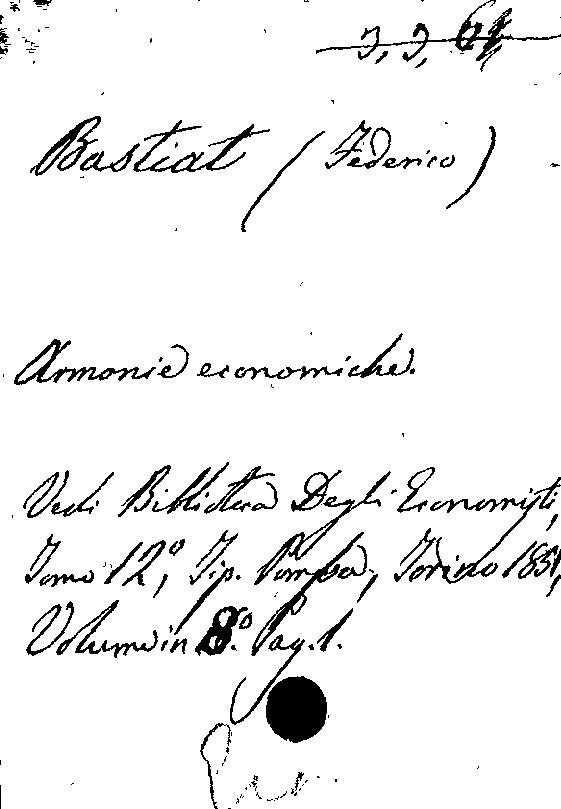 Bastiat (Federico)
Armonie economiche.
Vedi Biblioteca Degli Economisti,
Tomo 12º, Tip. Pomba, Torino 1851,
Volume in 8º. Pag. 1.